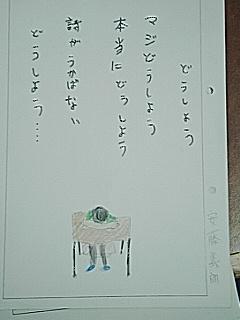 どうしよう
マジどうしよう
本当にどうしよう
詩がうかばない
どうしよう‥‥
安藤義朗